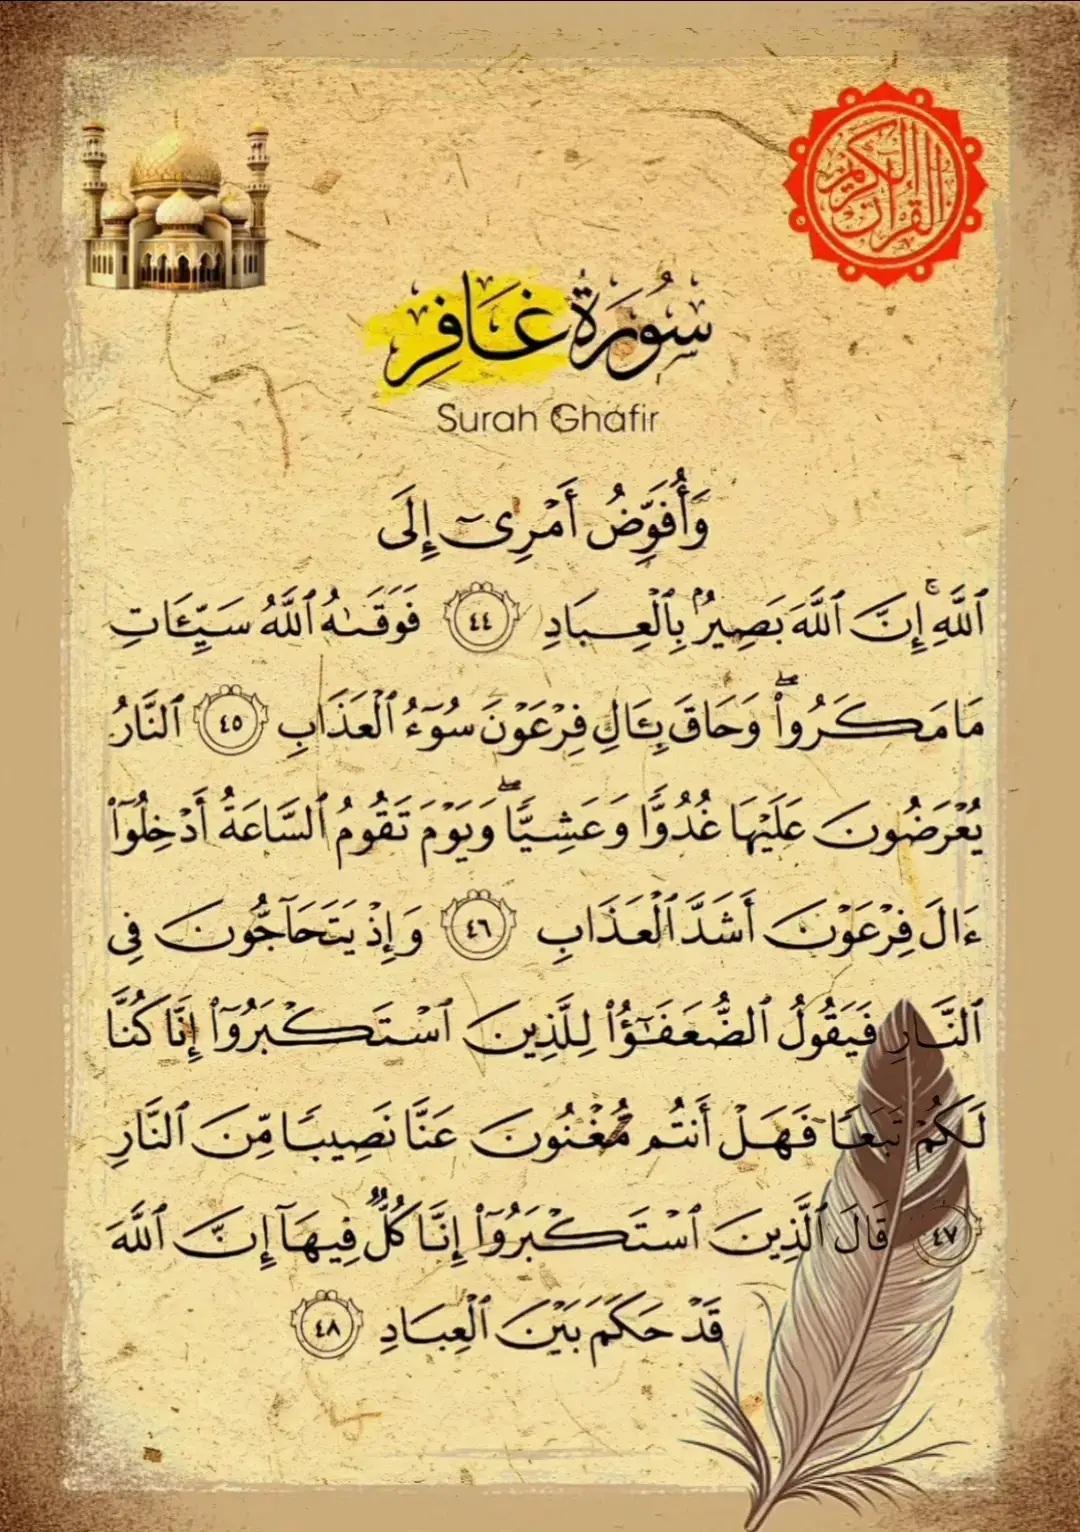 القرآن الكريم
سُورَةُ غَافِرٍ
Surah Ghafir
وَأُفَوِّضُ أَمْرِىٓ إِلَى
ٱللَّهِۚ إِنَّ ٱللَّهَ بَصِيرٌۢ بِٱلْعِبَادِ ٤٤ فَوَقَىٰهُ ٱللَّهُ سَيِّـَٔاتِ
مَا مَكَرُوا۟ۖ وَحَاقَ بِـَٔالِ فِرْعَوْنَ سُوٓءُ ٱلْعَذَابِ ٤٥ ٱلنَّارُ
يُعْرَضُونَ عَلَيْهَا غُدُوًّا وَعَشِيًّاۖ وَيَوْمَ تَقُومُ ٱلسَّاعَةُ أَدْخِلُوٓا۟
ءَالَ فِرْعَوْنَ أَشَدَّ ٱلْعَذَابِ ٤٦ وَإِذْ يَتَحَآجُّونَ فِى
ٱلنَّارِ فَيَقُولُ ٱلضُّعَفَـٰٓؤُا۟ لِلَّذِينَ ٱسْتَكْبَرُوٓا۟ إِنَّا كُنَّا
لَكُمْ تَبَعًا فَهَلْ أَنتُم مُّغْنُونَ عَنَّا نَصِيبًا مِّنَ ٱلنَّارِ
٤٧ قَالَ ٱلَّذِينَ ٱسْتَكْبَرُوٓا۟ إِنَّا كُلٌّ فِيهَآ إِنَّ ٱللَّهَ
قَدْ حَكَمَ بَيْنَ ٱلْعِبَادِ ٤٨